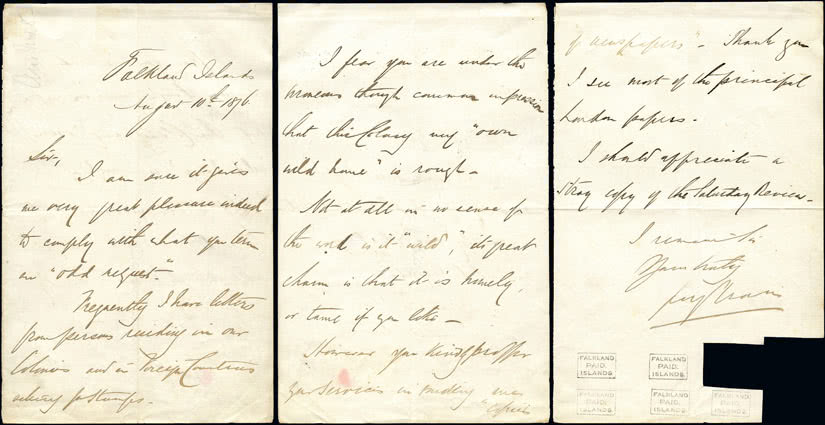 Falkland Islands
August 10th 1876
Sir,
I am sure it gives
me very great pleasure indeed
to comply with what you term
an "odd request."
Frequently I have letters
from persons residing in our
Colonies and in Foreign Countries
asking for stamps.
I fear you are under the
erroneous though common impression
that this Colony my "own
wild home" is rough -
Not at all in no sense of
the word is it "wild", its great
charm is that it is homely,
or tame if you like -
However you kindly proffer
your services in sending me
"copies
of newspapers" - Thank you
I see most of the principal
London papers.
I should appreciate a
stray copy of the Saturday Review -
I remain Sir
Yours truly
FALKLAND
PAID.
ISLANDS.
FALKLAND
PAID.
ISLANDS.
FALKLAND
PAID.
ISLANDS.
FALKLAND
PAID.
ISLANDS.
FALKLAND
PAID.
ISLANDS.